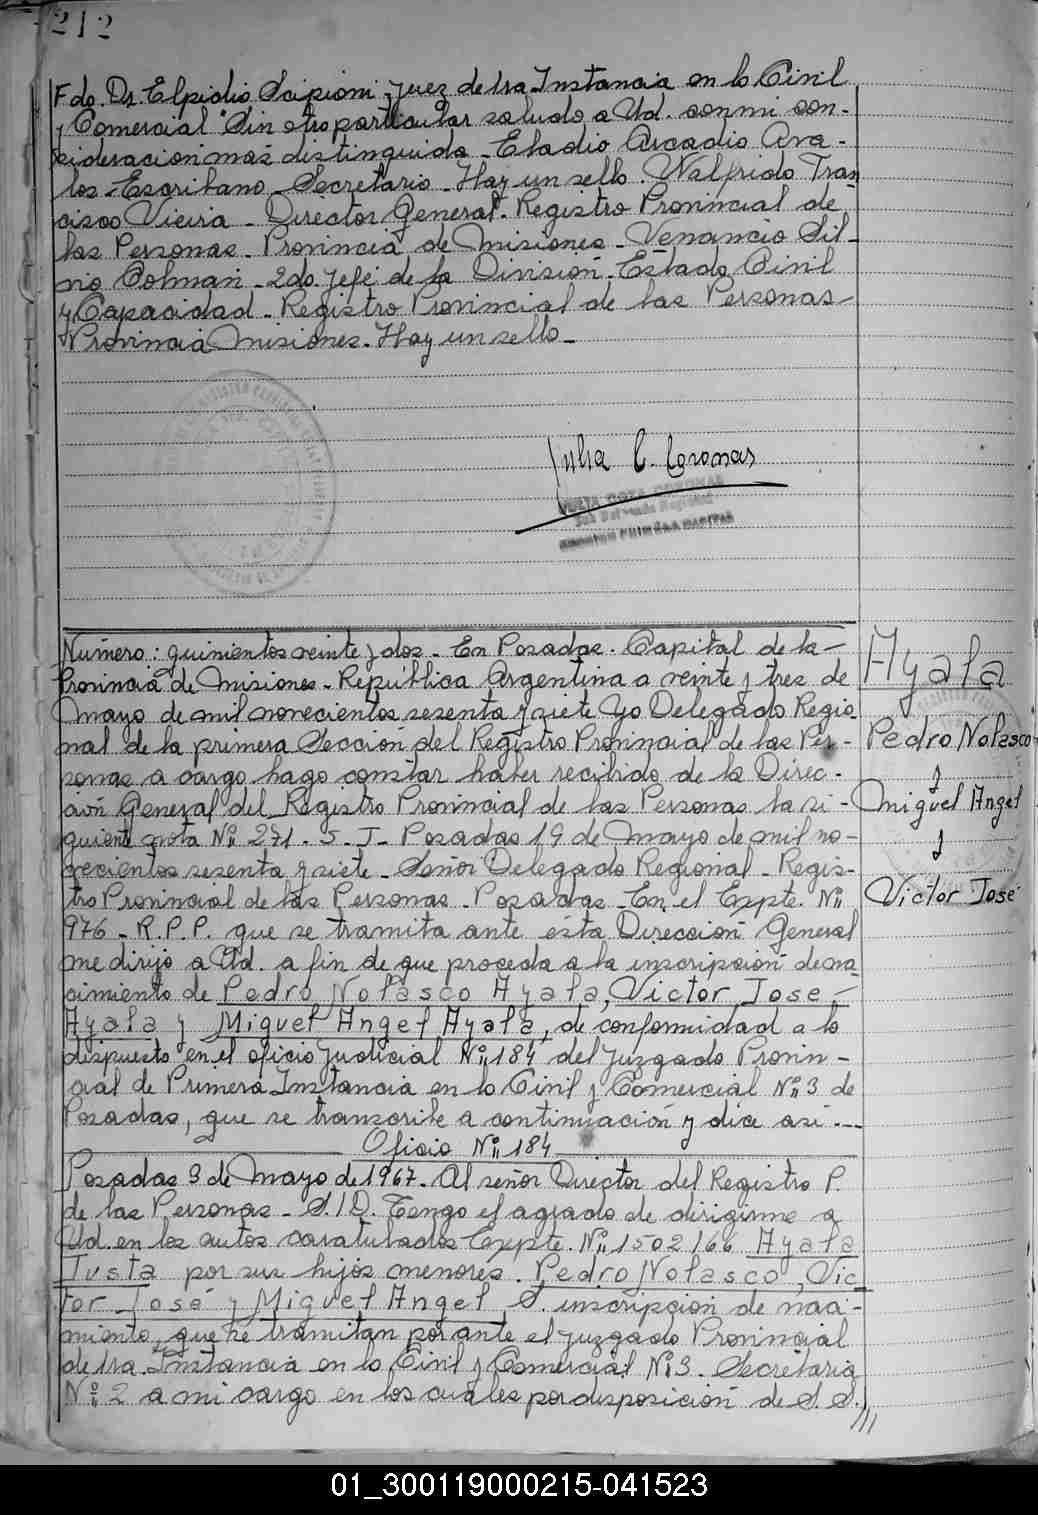 212
Fdo. Dr. Elpidio Scipioni - Juez de 1ra Instancia en lo Civil
y Comercial "Sin otro particular saludo a Ud. con mi con-
sideracion mas distinguida - Eladio Arcadio Ava-
los - Escribano - Secretario - Hay un sello. Walfrido Fran
cisco Vieira - Director General - Registro Provincial de
las Personas - Provincia de Misiones - Venancio Sil-
vio Colman - 2do. Jefe de la División - Estado Civil
y Capacidad - Registro Provincial de las Personas -
Provincia Misiones - Hay un sello -
Julia C. Coronas
Número: quinientos veinte y dos - En Posadas - Capital de la -
Provincia de Misiones - República Argentina a veinte y tres de
Mayo de mil novecientos sesenta y siete Yo Delegado Regio-
nal de la primera Sección del Registro Provincial de las Per-
sonas a cargo hago constar haber recibido de la Direc-
ción General del Registro Provincial de las Personas la si-
guiente nota Nº 271 - S. J - Posadas 19 de Mayo de mil no-
vecientos sesenta y siete - Señor Delegado Regional - Regis-
tro Provincial de las Personas - Posadas - En el Expte. Nº
976 - R.P.P. que se tramita ante ésta Dirección General
me dirijo a Ud. a fin de que proceda a la inscripción de na
cimiento de Pedro Nolasco Ayala, Victor Jose -
Ayala y Miguel Angel Ayala, de conformidad a lo
dispuesto en el oficio Judicial Nº 184 del Juzgado Provin-
cial de Primera Instancia en lo Civil y Comercial Nº 3 de
Posadas, que se transcribe a continuación y dice asi ---
Oficio Nº 184
Posadas 3 de Mayo de 1967 - Al señor Director del Registro P.
de las Personas - S./D. Tengo el agrado de dirigirme a
Ud. en los autos caratulados Expte. Nº 1502/66 Ayala
Justa por sus hijos menores. Pedro Nolasco, Vic
tor José y Miguel Angel S. inscripcion de naci-
miento, que se tramitan por ante el Juzgado Provincial
de 1ra Instancia en lo Civil y Comercial Nº 3. Secretaria
Nº 2 a mi cargo en los cuales por disposición de S. S. ///
Ayala
Pedro Nolasco
y
Miguel Angel
y
Victor José
01_300119000215-041523